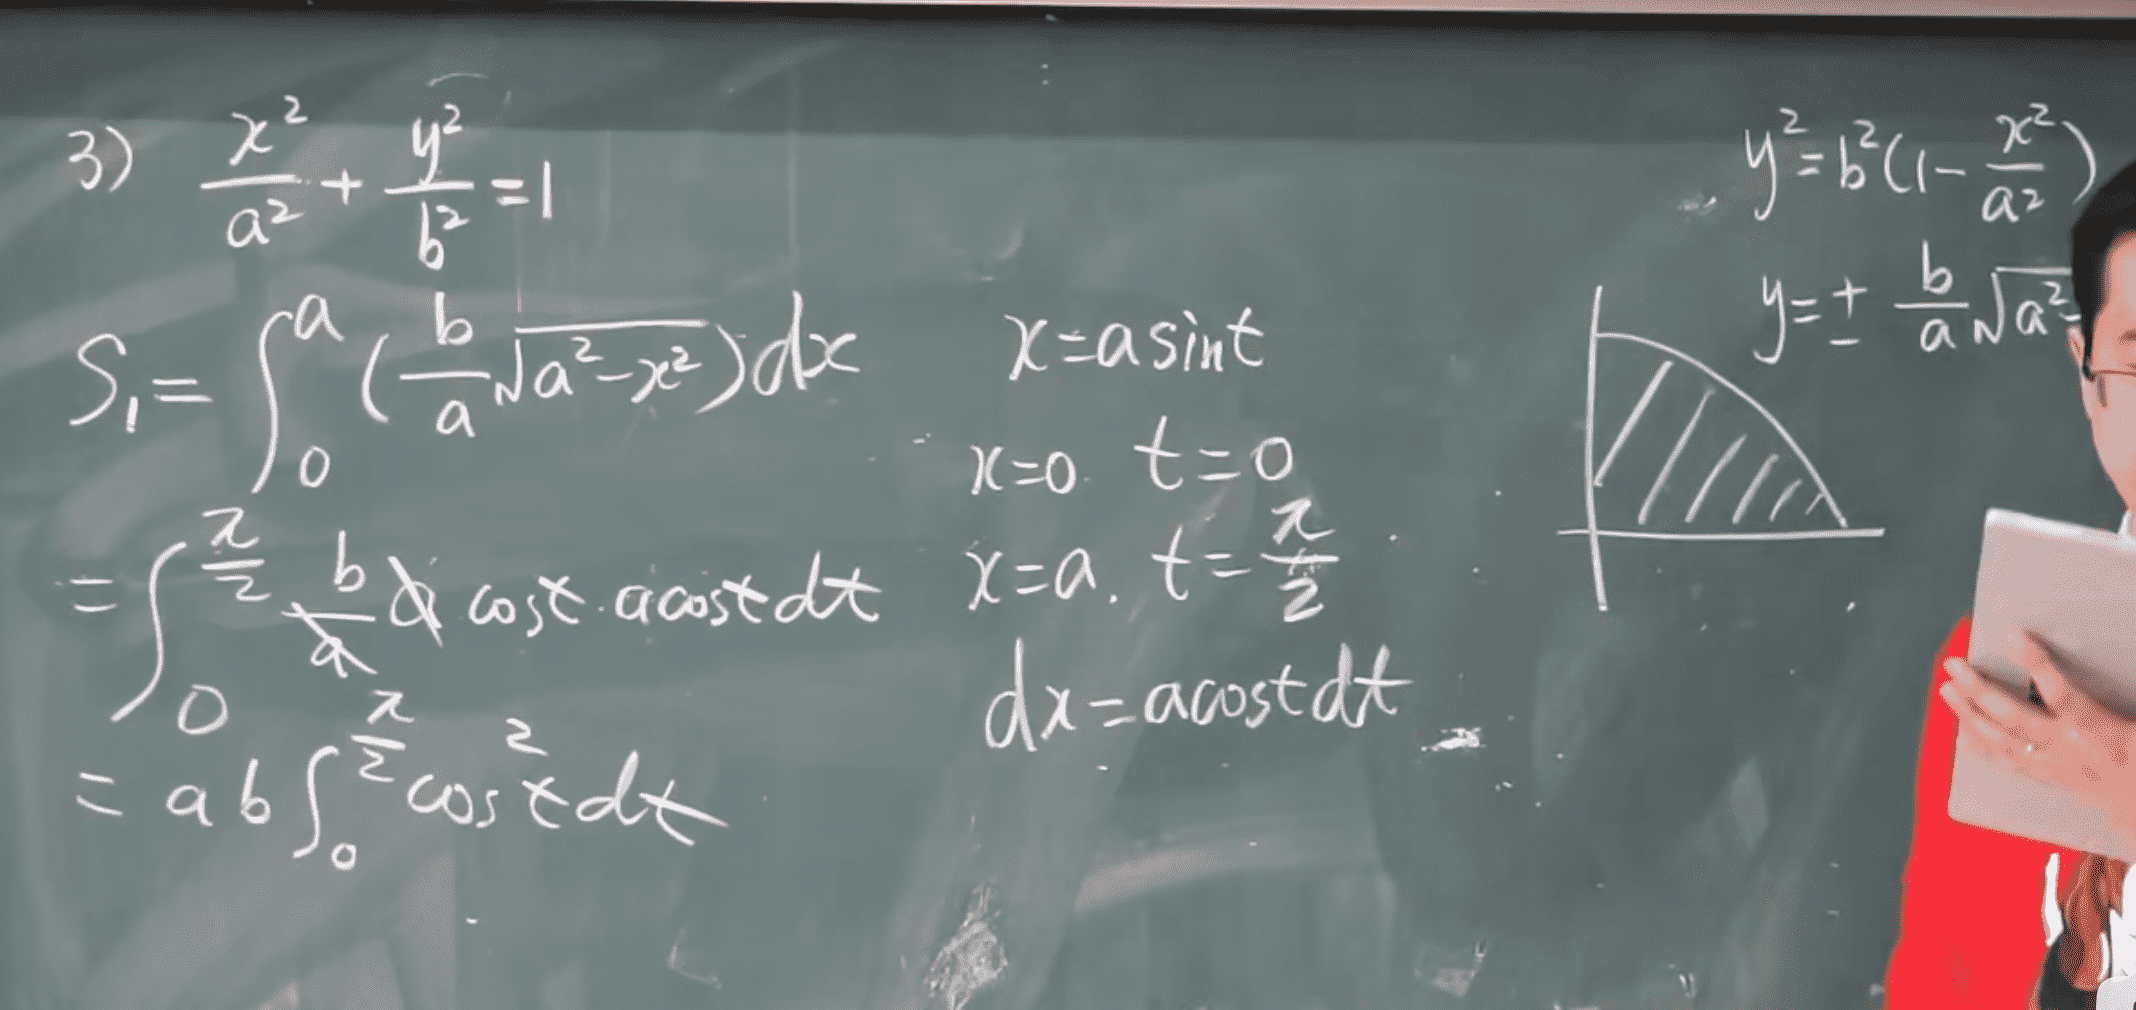 3) x²/a² + y²/b² = 1
S₁ = ∫₀ᵃ (b/a √(a²-x²)) dx
= ∫₀^(π/2) b/a a cost · a cost dt
= ab ∫₀^(π/2) cos²t dt
x = a sint
x=0. t=0
x=a. t=π/2
dx = a cost dt
y² = b²(1 - x²/a²)
y = ± b/a √a²-